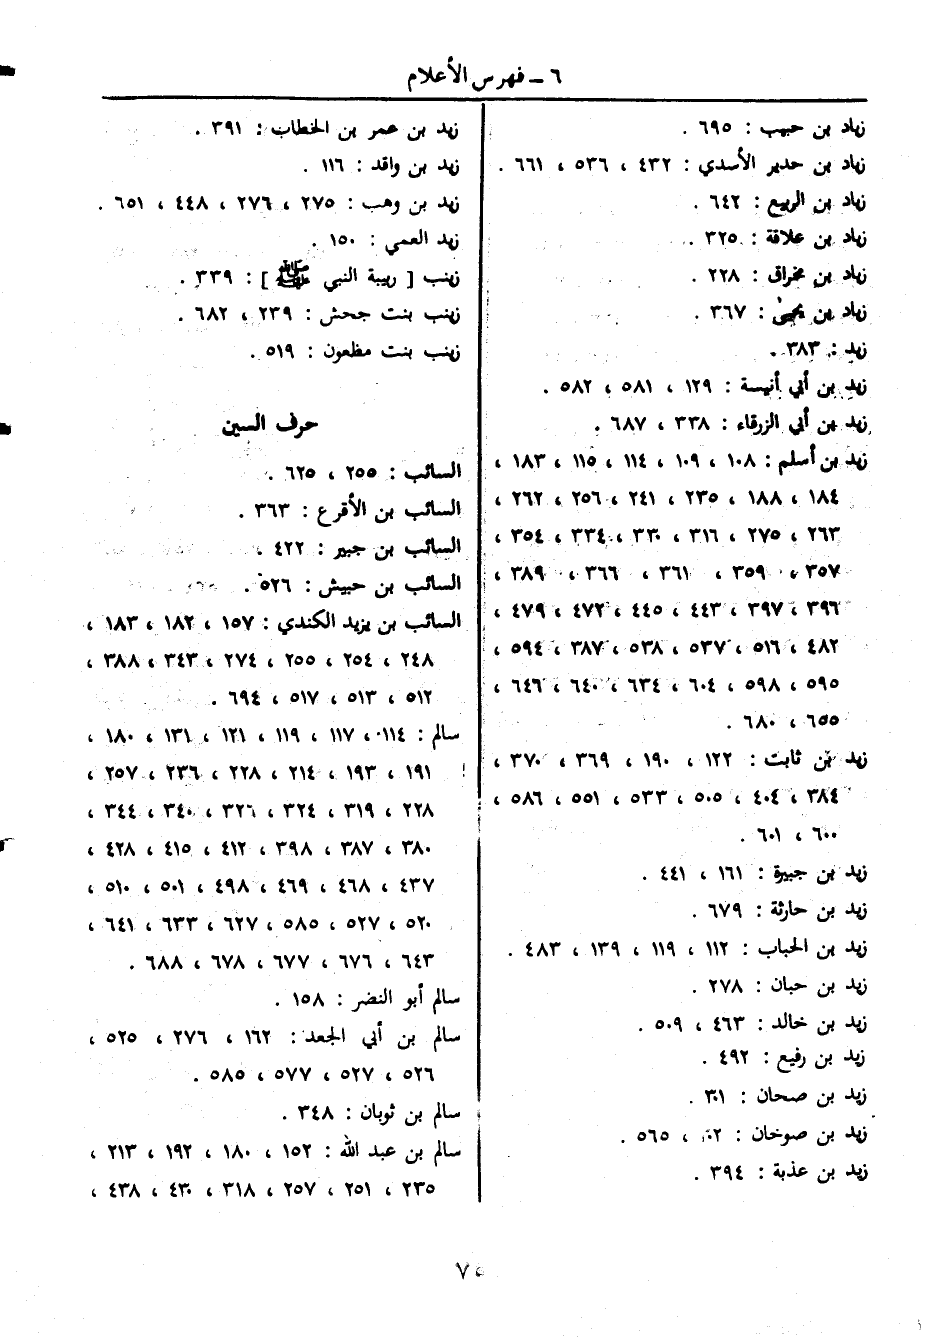 ٦ ــ فهرس الأعلام
زياد بن حبيب : ٦٩٥ .
زياد بن حدير الأسدي : ٤٣٢ ، ٥٣٦ ، ٦٦١ .
زياد بن الربيع : ٦٤٢ .
زياد بن علاقة : ٣٢٥ .
زياد بن مخراق : ٢٢٨ .
زياد بن يحيىٰ : ٣٦٧ .
زيد : ٣٨٣ .
زيد بن أبي أنيسة : ١٢٩ ، ٥٨١ ، ٥٨٢ .
زيد بن أبي الزرقاء : ٣٣٨ ، ٦٨٧ .
زيد بن أسلم : ١٠٨ ، ١٠٩ ، ١١٤ ، ١١٥ ، ١٨٣ ،
١٨٤ ، ١٨٨ ، ٢٣٥ ، ٢٤١ ، ٢٥٦ ، ٢٦٢ ،
٢٦٣ ، ٢٧٥ ، ٣١٦ ، ٣٣٠ ، ٣٣٤ ، ٣٥٤ ،
٣٥٧ ، ٣٥٩ ، ٣٦١ ، ٣٦٦ ، ٣٨٩ ،
٣٩٦ ، ٣٩٧ ، ٤٤٣ ، ٤٤٥ ، ٤٧٢ ، ٤٧٩ ،
٤٨٢ ، ٥١٦ ، ٥٣٧ ، ٥٣٨ ، ٣٨٧ ، ٥٩٤ ،
٥٩٥ ، ٥٩٨ ، ٦٠٤ ، ٦٣٤ ، ٦٤٠ ، ٦٤٦ ،
٦٥٥ ، ٦٨٠ .
زيد بن ثابت : ١٢٢ ، ١٩٠ ، ٣٦٩ ، ٣٧٠ ،
٣٨٤ ، ٤٠٤ ، ٥٠٥ ، ٥٣٣ ، ٥٥١ ، ٥٨٦ ،
٦٠٠ ، ٦٠١ .
زيد بن جبيرة : ١٦١ ، ٤٤١ .
زيد بن حارثة : ٦٧٩ .
زيد بن الحباب : ١١٢ ، ١١٩ ، ١٣٩ ، ٤٨٣ .
زيد بن حبان : ٢٧٨ .
زيد بن خالد : ٤٦٣ ، ٥٠٩ .
زيد بن رفيع : ٤٩٢ .
زيد بن صحان : ٣٠١ .
زيد بن صوخان : ، ٥٦٥ .
زيد بن عذبة : ٣٩٤ .
زيد بن عمر بن الخطاب : ٣٩١ .
زيد بن واقد : ١١٦ .
زيد بن وهب : ٢٧٥ ، ٢٧٦ ، ٤٤٨ ، ٦٥١ .
زيد العمي : ١٥٠ .
زينب [ ربيبة النبي ﷺ ] : ٣٣٩ .
زينب بنت جحش : ٢٣٩ ، ٦٨٢ .
زينب بنت مظعون : ٥١٩ .
حرف السين
السائب : ٢٥٥ ، ٦٢٥ .
السائب بن الأقرع : ٣٦٣ .
السائب بن جبير : ٤٢٢ .
السائب بن حبيش : ٥٢٦ .
السائب بن يزيد الكندي : ١٥٧ ، ١٨٢ ، ١٨٣ ،
٢٤٨ ، ٢٥٤ ، ٢٥٥ ، ٢٧٤ ، ٣٤٣ ، ٣٨٨ ،
٥١٢ ، ٥١٣ ، ٥١٧ ، ٦٩٤ .
سالم : ١١٤ ، ١١٧ ، ١١٩ ، ١٢١ ، ١٣١ ، ١٨٠ ،
١٩١ ، ١٩٣ ، ٢١٤ ، ٢٢٨ ، ٢٣٦ ، ٢٥٧ ،
٢٢٨ ، ٣١٩ ، ٣٢٤ ، ٣٢٦ ، ٣٤٠ ، ٣٤٤ ،
٣٨٠ ، ٣٨٧ ، ٣٩٨ ، ٤١٢ ، ٤١٥ ، ٤٢٨ ،
٤٣٧ ، ٤٦٨ ، ٤٦٩ ، ٤٩٨ ، ٥٠١ ، ٥١٠ ،
٥٢٠ ، ٥٢٧ ، ٥٨٥ ، ٦٢٧ ، ٦٣٣ ، ٦٤١ ،
٦٤٣ ، ٦٧٦ ، ٦٧٧ ، ٦٧٨ ، ٦٨٨ .
سالم أبو النضر : ١٥٨ .
سالم بن أبي الجعد : ١٦٢ ، ٢٧٦ ، ٥٢٥ ،
٥٢٦ ، ٥٢٧ ، ٥٧٧ ، ٥٨٥ .
سالم بن ثوبان : ٣٤٨ .
سالم بن عبد الله : ١٥٢ ، ١٨٠ ، ١٩٢ ، ٢١٣ ،
٢٣٥ ، ٢٥١ ، ٢٥٧ ، ٣١٨ ، ٤٣٠ ، ٤٣٨ ،